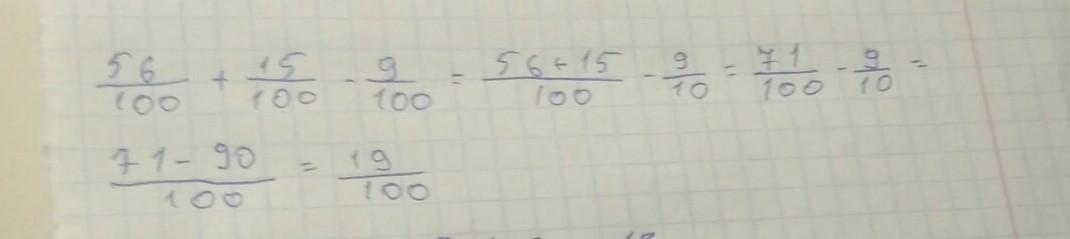 56/100 + 15/100 - 9/100 = 56+15/100 - 9/10 = 71/100 - 9/10 =
71-90/100 = 19/100